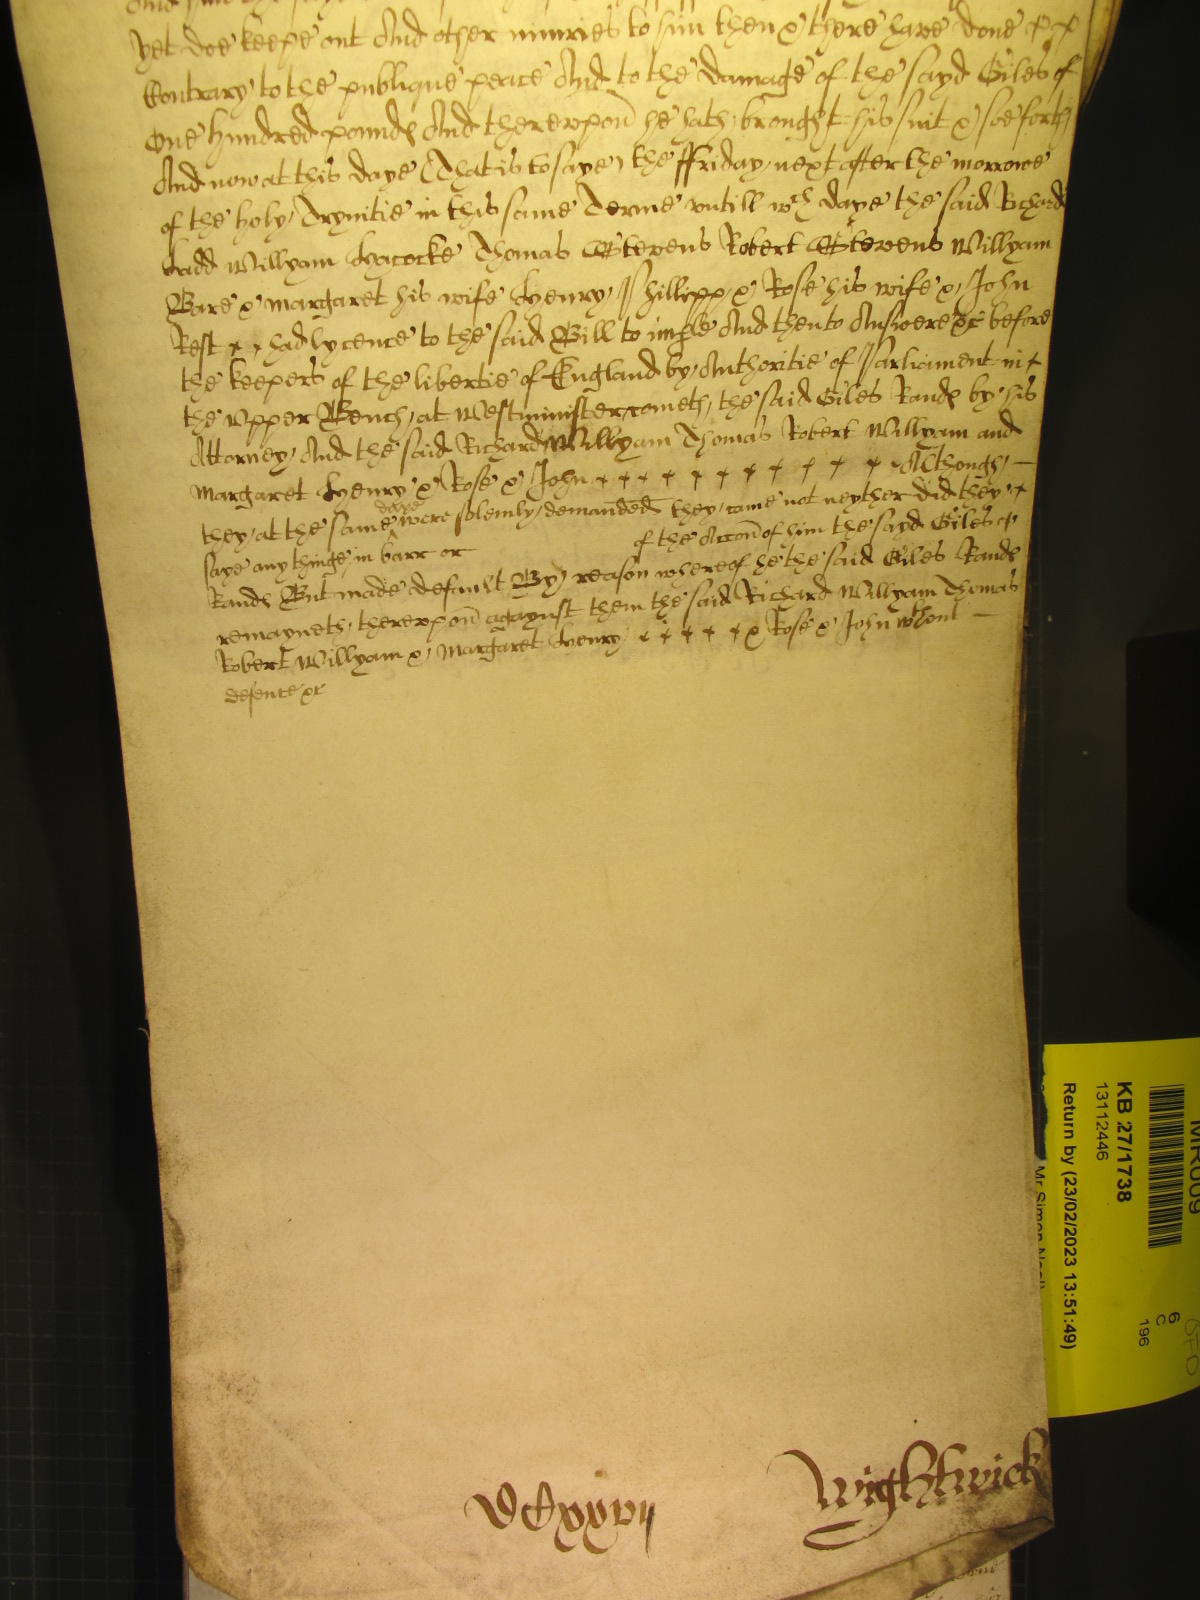 yet doe keepe out And other iniuries to him then & there have done
Contrary to the publique peace And to the damage of the sayd Giles of
One hundred pounds And therevpon he hath brought his suit & soe forth
And now at this daye (That is to saye) the ffriday next after the morrowe
of the holy Trynitie in this same Terme vntill wch daye the said Richard
Ladd Willyam Hacocke Thomas Stevens Robert Stevens Willyam
Bare & Margaret his wife Henry Phillipp & Rose his wife & John
Rest had lycence to the said Bill to imple And then to Answere &c before
the keepers of the libertie of England by Authoritie of Parliament in
the vpper Bench at Westminister cometh the said Giles Rands by his
Attorney And the said Richard Willyam Thomas Robert Willyam and
Margaret Henry & Rose & John Although
they at the same daye were solemly demanded they came not neyther did they
saye any thinge in barr or of the Accon of him the sayd Giles
Rands But made default By reason whereof he the said Giles Rands
remayneth therevpon agaynst them the said Richard Willyam Thomas
Robert Willyam & Margaret Henry & Rose & John wthout
defence &c
DCxxvij
Wightwick
KB 27/1738
13112446
Return by (23/02/2023 13:51:49)
6
C
196